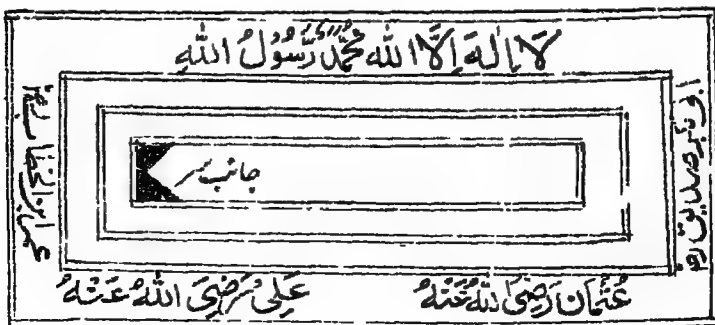 لَا إِلٰهَ إِلَّا اللّٰه مُحَمَّدٌ رَّسُوْلُ اللّٰهِ
ابی بکر صدیق رضہ
عمر ابن الخطاب رضہ
جانب سر
عُثْمَان رَضِیَ اللّٰهُ عَنْهُ
عَلِی رَضِیَ اللّٰهُ عَنْهُ